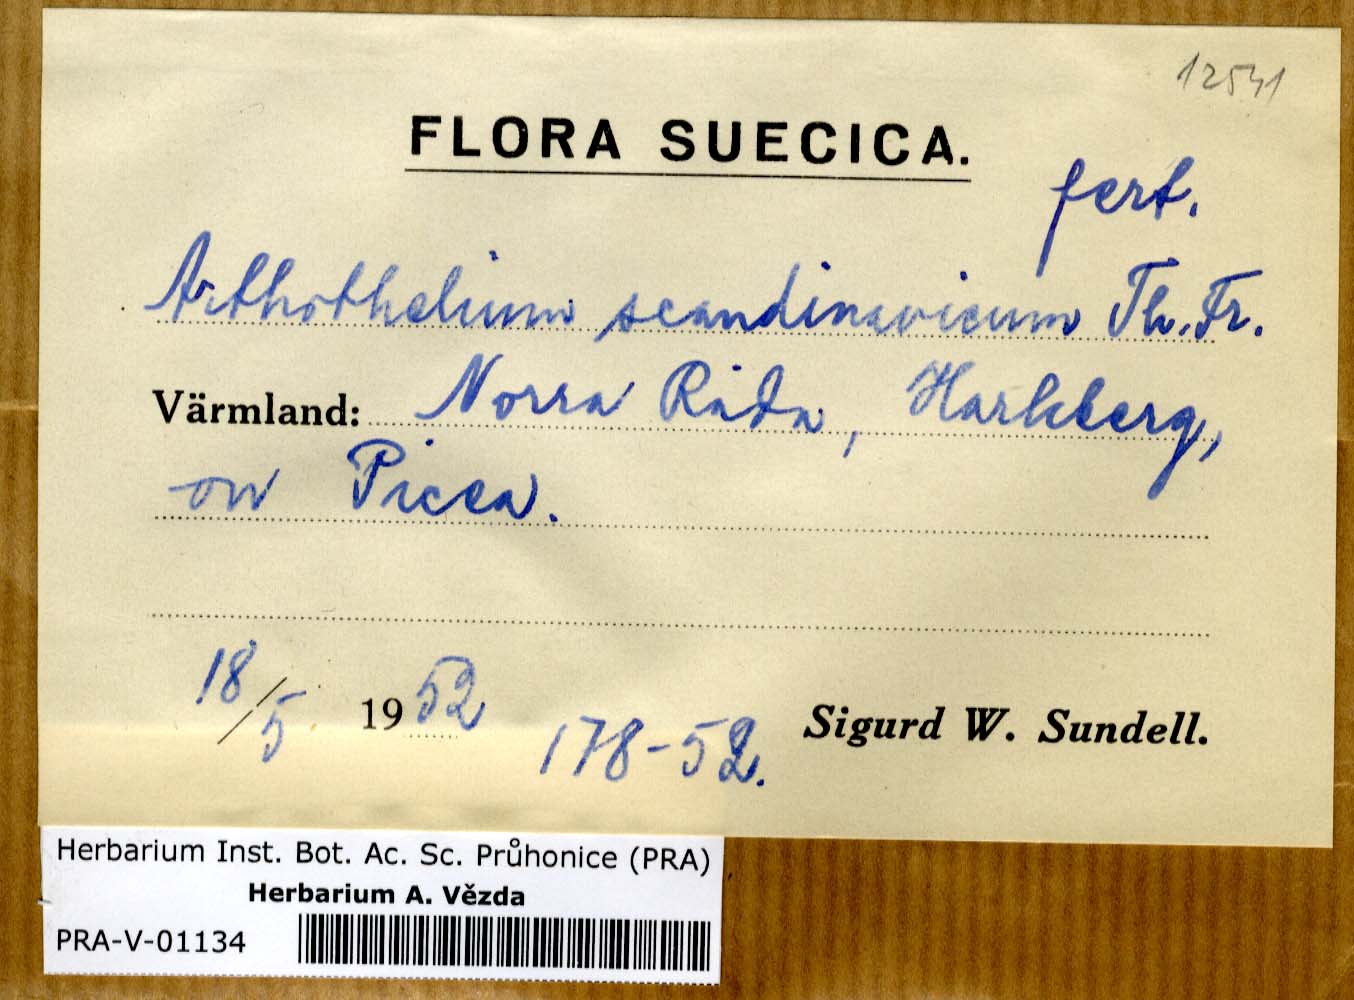 12541
FLORA SUECICA.
fert.
Arthothelium scandinavicum Th. Fr.
Värmland: Norra Råda, Harkberg,
on Picea.
18/5 1952
178-52.
Sigurd W. Sundell.
Herbarium Inst. Bot. Ac. Sc. Průhonice (PRA)
Herbarium A. Vězda
PRA-V-01134